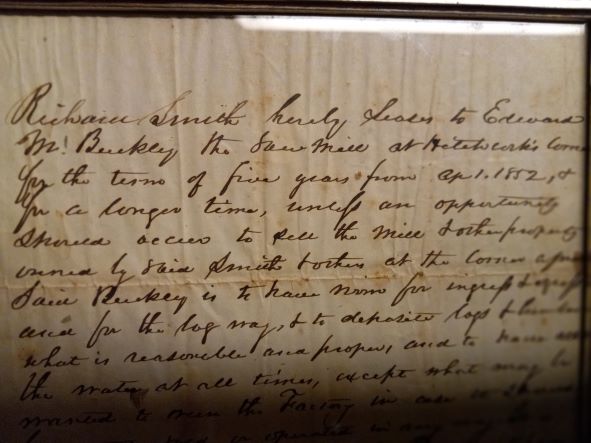 Richard Smith hereby leases to Edward
M. Buckley the Saw Mill at Hitchcock's Corner
for the term of five years from Ap 1. 1852, &
for a longer time, unless an opportunity
should occur to sell the Mill & other property
owned by said Smith & others at the Corner
Said Buckley is to have room for ingress & egress
and for the log way, & to deposite logs & lumber
what is reasonable and proper, and to have
the water at all times, except what may be
wanted to run the Factory in case it should